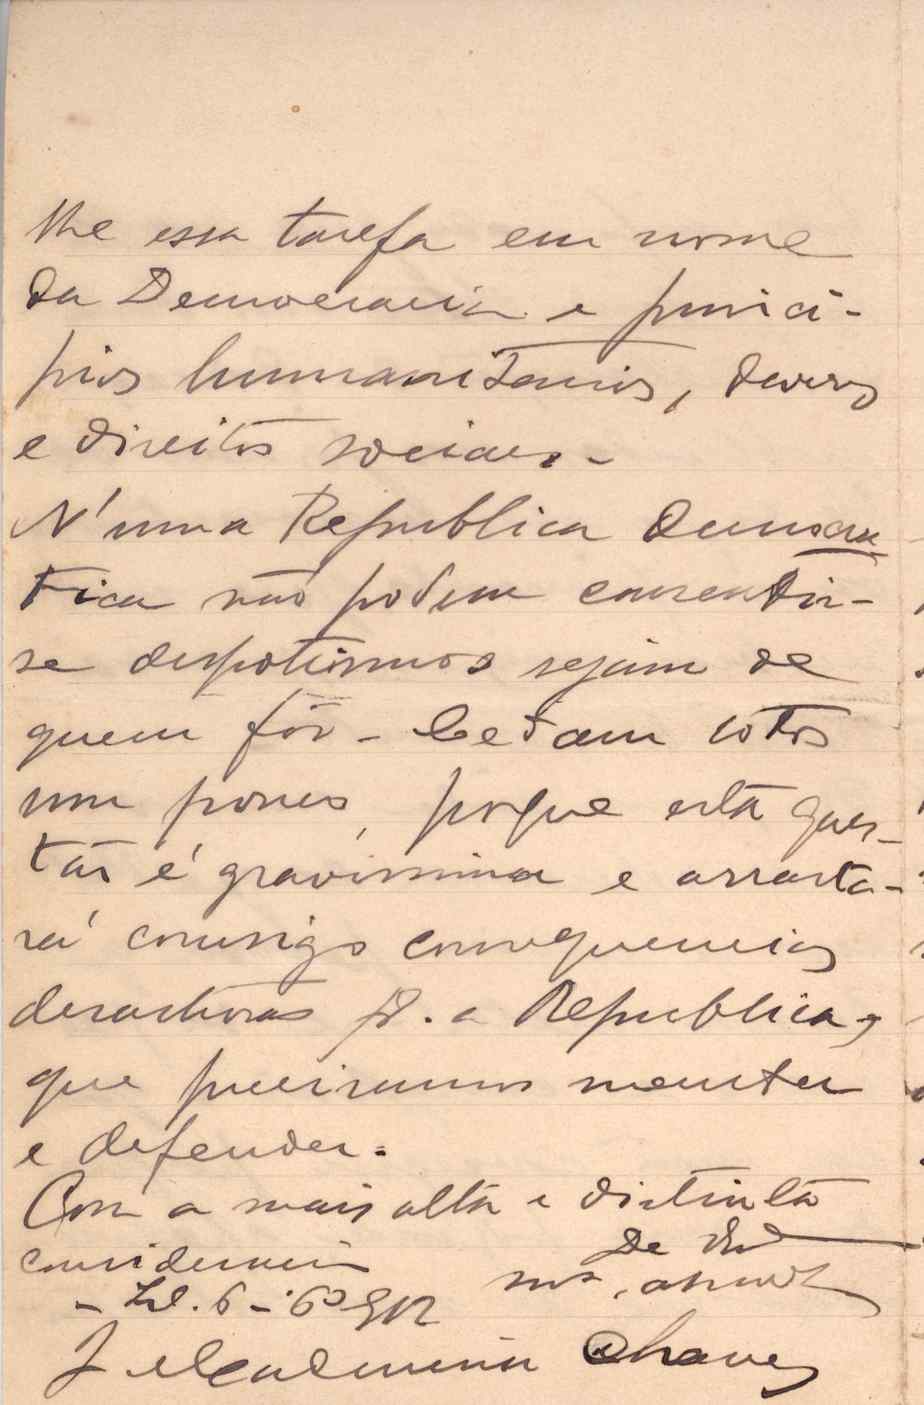 lhe essa tarefa em nome
da Democracia e princi-
pios humanitarios, deveres
e direitos sociaes. -
N'uma Republica Democra
tica não podem consentir-
se despotismos sejam de
quem fôr - Cedam todos
um pouco, porque esta ques-
tão é gravissima e arrasta-
rá comsigo consequencias
desastrosas p. a Republica,
que precisamos manter
e defender.
Com a mais alta e distinta
De
consideração
- 6 - 6º 912
J Chaves